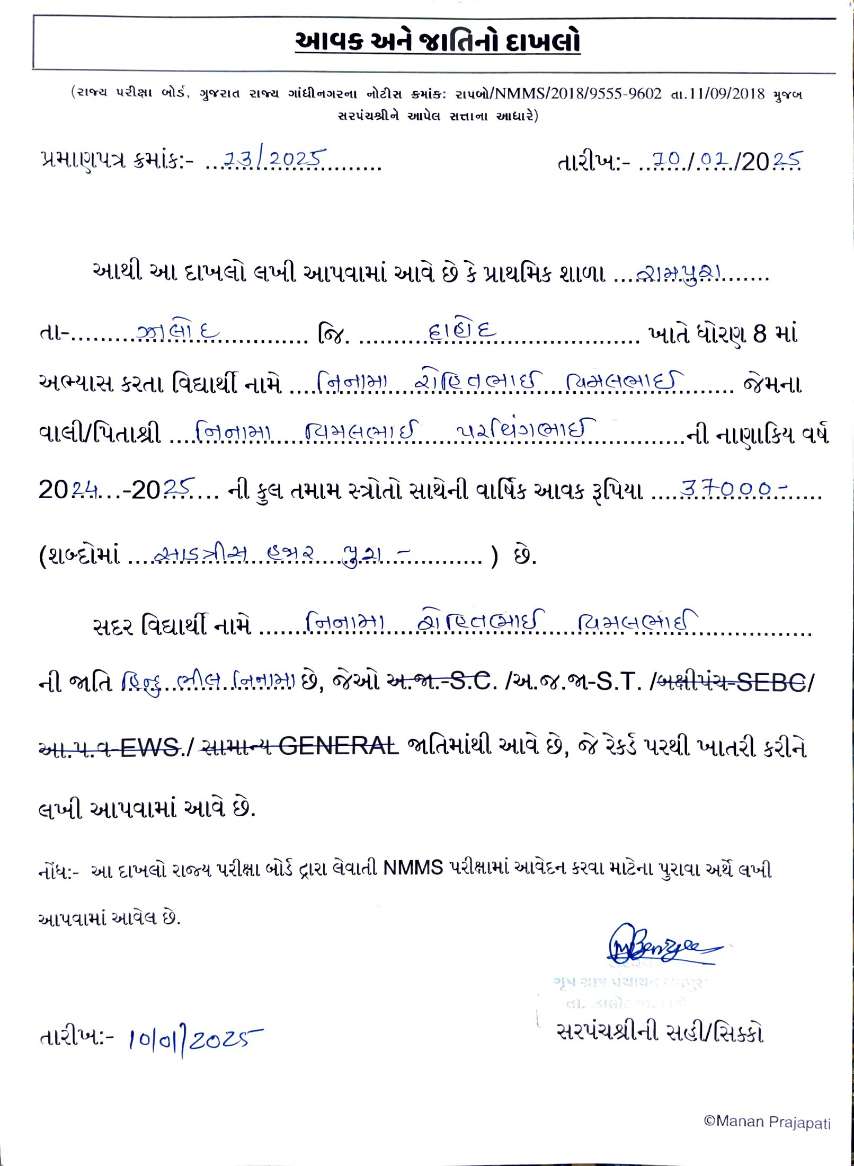 આવક અને જાતિનો દાખલો
(રાજ્ય પરીક્ષા બોર્ડ, ગુજરાત રાજ્ય ગાંધીનગરના નોટીસ ક્રમાંક: રાપબો/NMMS/2018/9555-9602 તા.11/09/2018 મુજબ
સરપંચશ્રીને આપેલ સત્તાના આધારે)
પ્રમાણપત્ર ક્રમાંક:- ...13/2025... તારીખ:- 10/01/2025
આથી આ દાખલો લખી આપવામાં આવે છે કે પ્રાથમિક શાળા ...રામપુરા...
તા-...ઝાલોદ... જિ. ...દાહોદ... ખાતે ધોરણ 8 માં
અભ્યાસ કરતા વિદ્યાર્થી નામે ...નિનામા રોહિતભાઈ વિમલભાઈ... જેમના
વાલી/પિતાશ્રી ...નિનામા વિમલભાઈ પરથિંગભાઈ...ની નાણાકિય વર્ષ
2024...-2025... ની કુલ તમામ સ્ત્રોતો સાથેની વાર્ષિક આવક રૂપિયા ...37000-...
(શબ્દોમાં ...સાડત્રીસ હજાર પુરા -... ) છે.
સદર વિદ્યાર્થી નામે ...નિનામા રોહિતભાઈ વિમલભાઈ...
ની જાતિ હિન્દુ ભીલ નિનામા છે, જેઓ અ.જા.-S.C. /અ.જ.જા-S.T. /બક્ષીપંચ-SEBC/
આ.પ.વ-EWS./ સામાન્ય GENERAL જાતિમાંથી આવે છે, જે રેકર્ડ પરથી ખાતરી કરીને
લખી આપવામાં આવે છે.
નોંધ:- આ દાખલો રાજ્ય પરીક્ષા બોર્ડ દ્વારા લેવાતી NMMS પરીક્ષામાં આવેદન કરવા માટેના પુરાવા અર્થે લખી
આપવામાં આવેલ છે.
ગૃપ ગ્રામ પંચાયત
તારીખ:- 10/01/2025 સરપંચશ્રીની સહી/સિક્કો
©Manan Prajapati